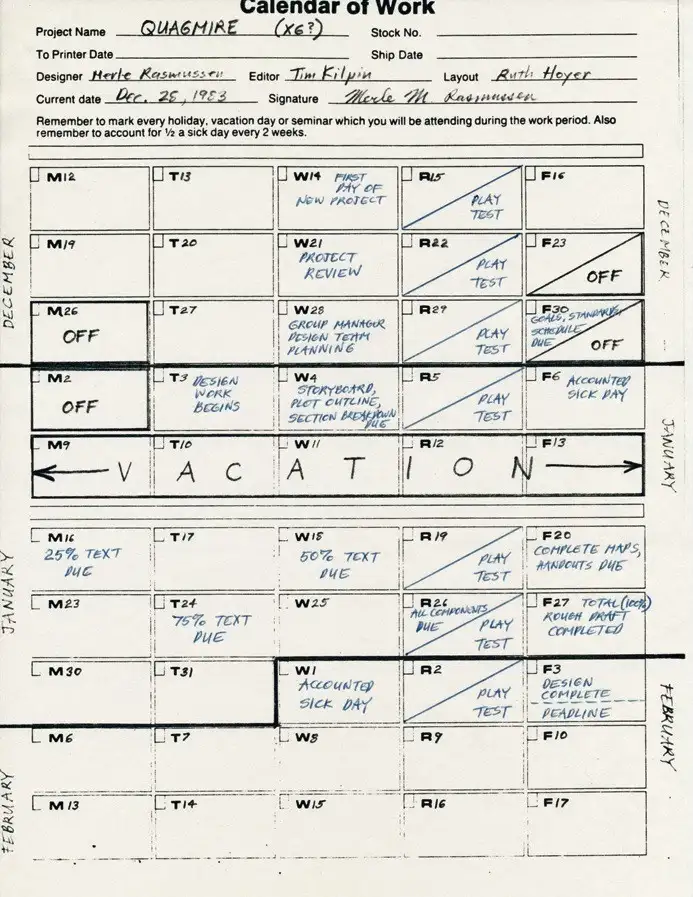 Calendar of Work
Project Name QUAGMIRE (X6?) Stock No.
To Printer Date Ship Date
Designer Merle Rasmussen Editor Tim Kilpin Layout Ruth Hoyer
Current date Dec. 25, 1983 Signature Merle M. Rasmussen
Remember to mark every holiday, vacation day or seminar which you will be attending during the work period. Also
remember to account for ½ a sick day every 2 weeks.
DECEMBER
DECEMBER
M12 T13 W14 FIRST DAY OF NEW PROJECT R15 PLAY TEST F16
M19 T20 W21 PROJECT REVIEW R22 PLAY TEST F23 OFF
M26 OFF T27 W28 GROUP MANAGER DESIGN TEAM PLANNING R29 PLAY TEST F30 GOALS, STANDARDS SCHEDULE DUE OFF
JANUARY
M2 OFF T3 DESIGN WORK BEGINS W4 STORYBOARD, PLOT OUTLINE, SECTION BREAKDOWN DUE R5 PLAY TEST F6 ACCOUNTED SICK DAY
M9 T10 W11 R12 F13
VACATION
JANUARY
M16 25% TEXT DUE T17 W18 50% TEXT DUE R19 PLAY TEST F20 COMPLETE MAPS, HANDOUTS DUE
M23 T24 75% TEXT DUE W25 R26 ALL COMPONENTS DUE PLAY TEST F27 TOTAL (100%) ROUGH DRAFT COMPLETED
FEBRUARY
M30 T31 W1 ACCOUNTED SICK DAY R2 PLAY TEST F3 DESIGN COMPLETE DEADLINE
M6 T7 W8 R9 F10
FEBRUARY
M13 T14 W15 R16 F17